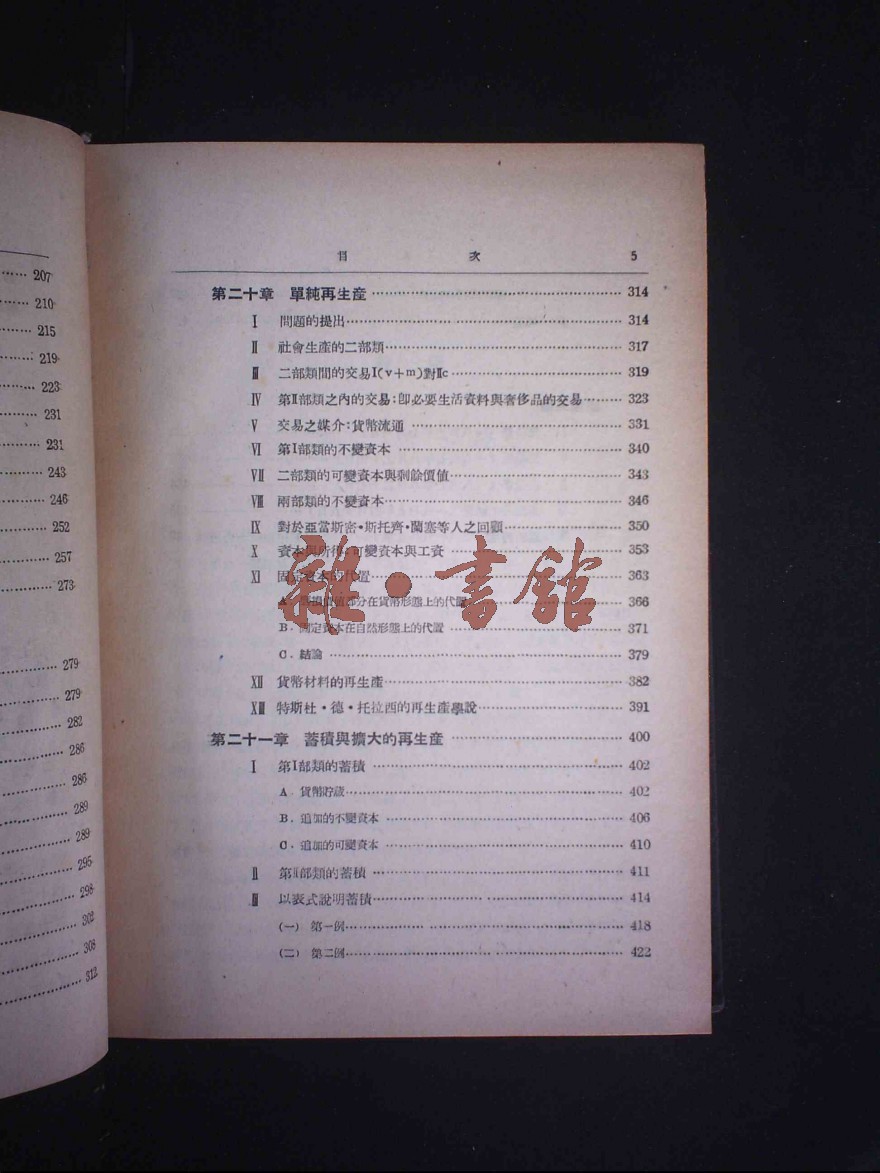 207
210
215
219
223
231
231
243
246
252
257
273
279
279
282
286
286
289
289
295
298
302
308
312
目 次 5
第二十章 單純再生産 314
I 問題的提出 314
II 社會生產的二部類 317
III 二部類間的交易I(v+m)對IIc 319
IV 第II部類之內的交易:卽必要生活資料與奢侈品的交易 323
V 交易之媒介:貨幣流通 331
VI 第I部類的不變資本 340
VII 二部類的可變資本與剩餘價値 343
VIII 兩部類的不變資本 346
IX 對於亞當斯密·斯托齊·蘭塞等人之回顧 350
X 資本與所得:可變資本與工資 353
XI 固定資本的代置 363
A. 價値部分在貨幣形態上的代置 366
B. 固定資本在自然形態上的代置 371
C. 結論 379
XII 貨幣材料的再生產 382
XIII 特斯杜·德·托拉西的再生產學說 391
第二十一章 蓄積與擴大的再生産 400
I 第I部類的蓄積 402
A. 貨幣貯藏 402
B. 追加的不變資本 406
C. 追加的可變資本 410
II 第II部類的蓄積 411
III 以表式說明蓄積 414
(一) 第一例 418
(二) 第二例 422
雜·書館